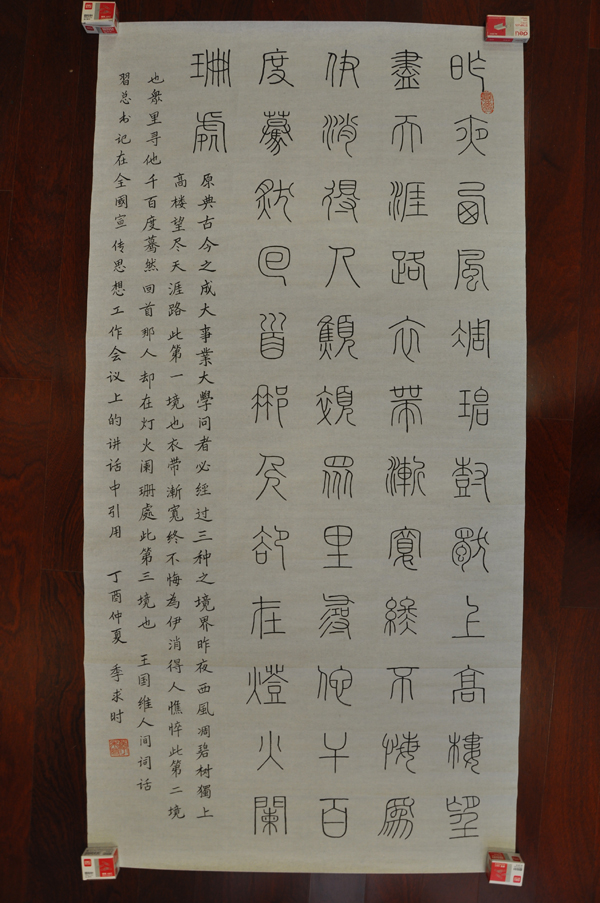 昨夜西風凋碧樹獨上高樓望
盡天涯路衣帶漸寬終不悔為
伊消得人顦顇眾里尋他千百
度驀然回首那人卻在燈火闌
珊處
原典古今之成大事業大學问者必經过三种之境界昨夜西風凋碧树獨上
高楼望尽天涯路此第一境也衣带渐寬终不悔為伊消得人憔悴此第二境
也衆里寻他千百度蓦然回首那人却在灯火阑珊處此第三境也 王国维人间词话
習总书记在全國宣传思想工作会议上的讲话中引用 丁酉仲夏 季求时